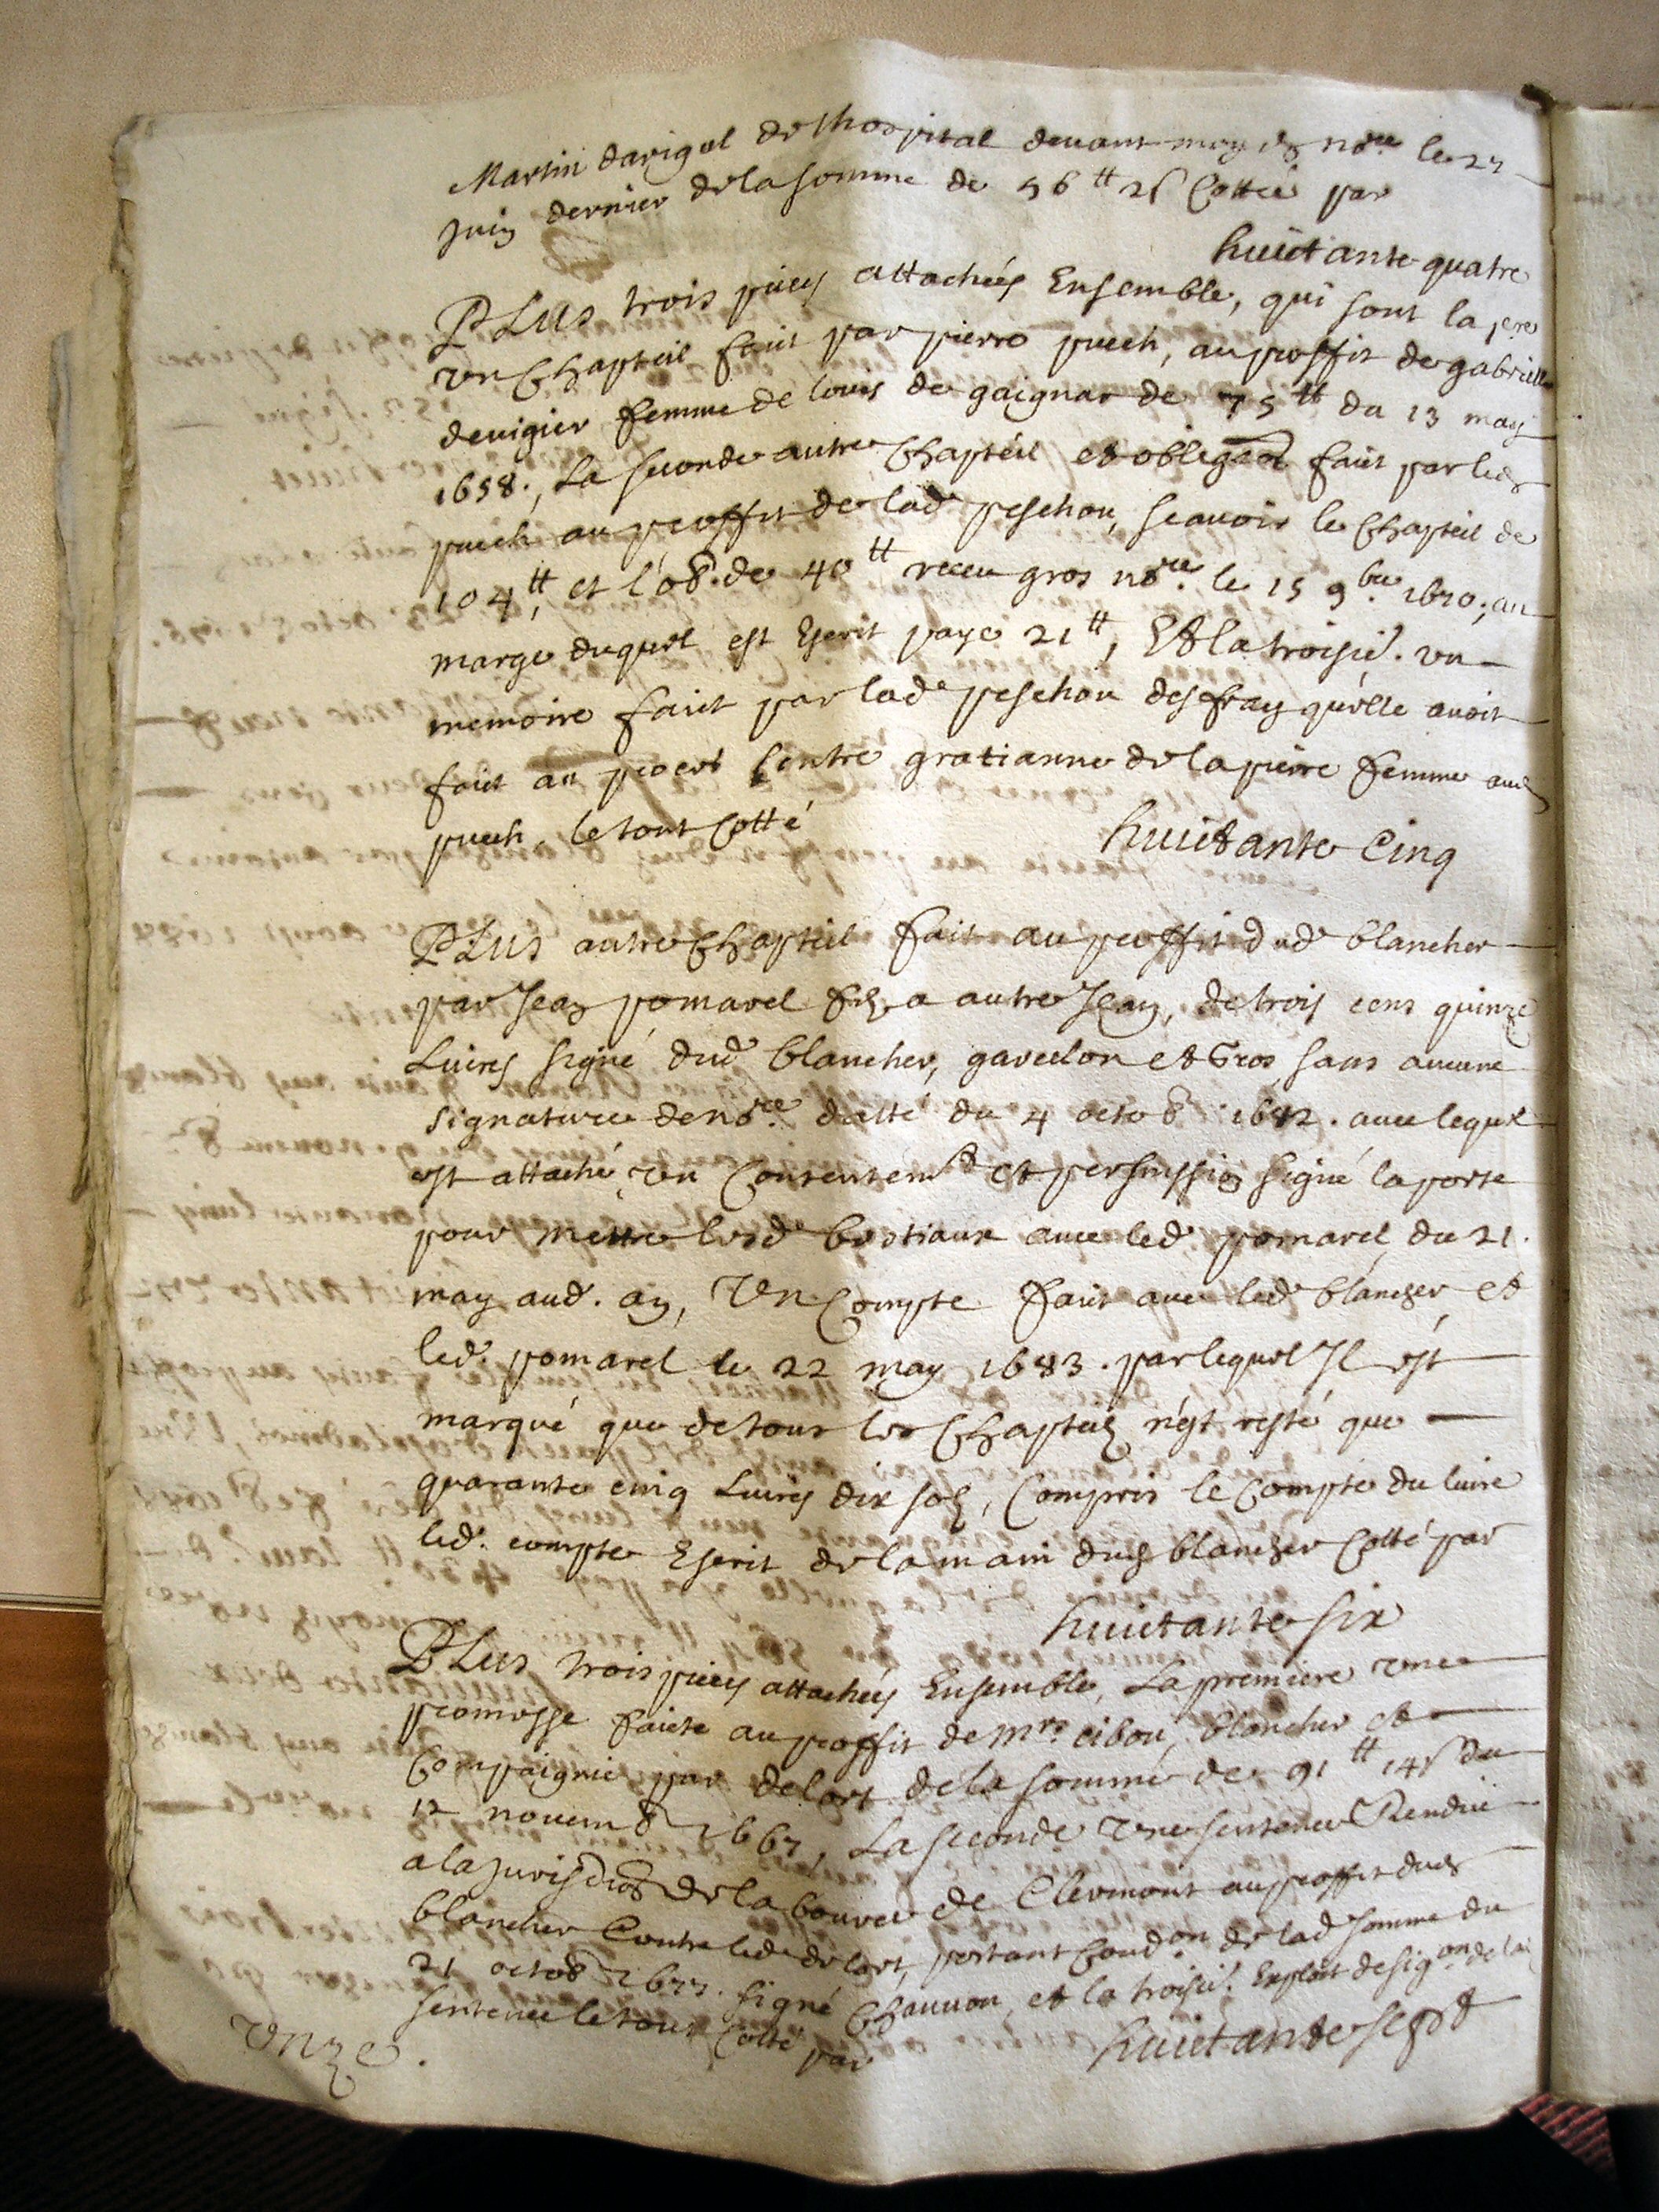 Martin darigal de lhospital devant moy d. nore le 27
juin dernier de la somme de 56 tt 2 s Cottée par
huictante quatre
PLus trois pieces attachées Ensemble, qui sont la pre
un Chapteil fait par pierre puech, au proffit de gabrielle
devigier femme de louis de gaignac de 75 tt du 13 may
1658., La seconde autre Chapteil et obligaon fait par led
puech au proffit de lad peschou, scavoir le Chapteil de
104 tt, et l'ob. de 40 tt receu gros nore. le 15 9bre 1670, au
marge duquel est Escrit payé 21 tt, Et la troisie. un
memoire faict par lad peschou des fray qu'elle avoit
fait au procés Contre gratianne de la pierre femme aud
puech, le tout Cotté
huictante Cinq
PLus autre Chapteil fait au proffit dud blancher
par Jean pomarel fils a autre Jean, de trois cens quinze
Livres signé dud blancher, gavelon et Gros sans aucune
signature de nore. datté du 4 octob 1682. avec lequel
est attaché, un Consentemt et permission signé laporte
pour mettre lesd bestiaux avec led pomarel du 21.
may aud. an, Un Compte fait avec led blancher et
led. pomarel le 22 may 1683. par lequel Il est
marqué que de tous les Chapteils n'est resté que
quarante cinq Livres dix sols, Compris le Compte du livre
led. compte Escrit de la main dud blancher Cotté par
huictante six
PLus trois pieces attachées Ensemble, La premiere une
promesse faicte au proffit de Mrs. cibou, blancher et
Compaignie par delort de la somme de 91 tt 14 s du
12 novemb 1667, La seconde une sentence Rendue
a la jurisdion de la bource de Clermont au proffit dud
blancher Contre led delort, portant Condon de lad somme du
21 octob 1677. signé Chauvon, et la troisie. Exploit de sigon de lad
sentence le tout Cotté par
huictante sept
unze.